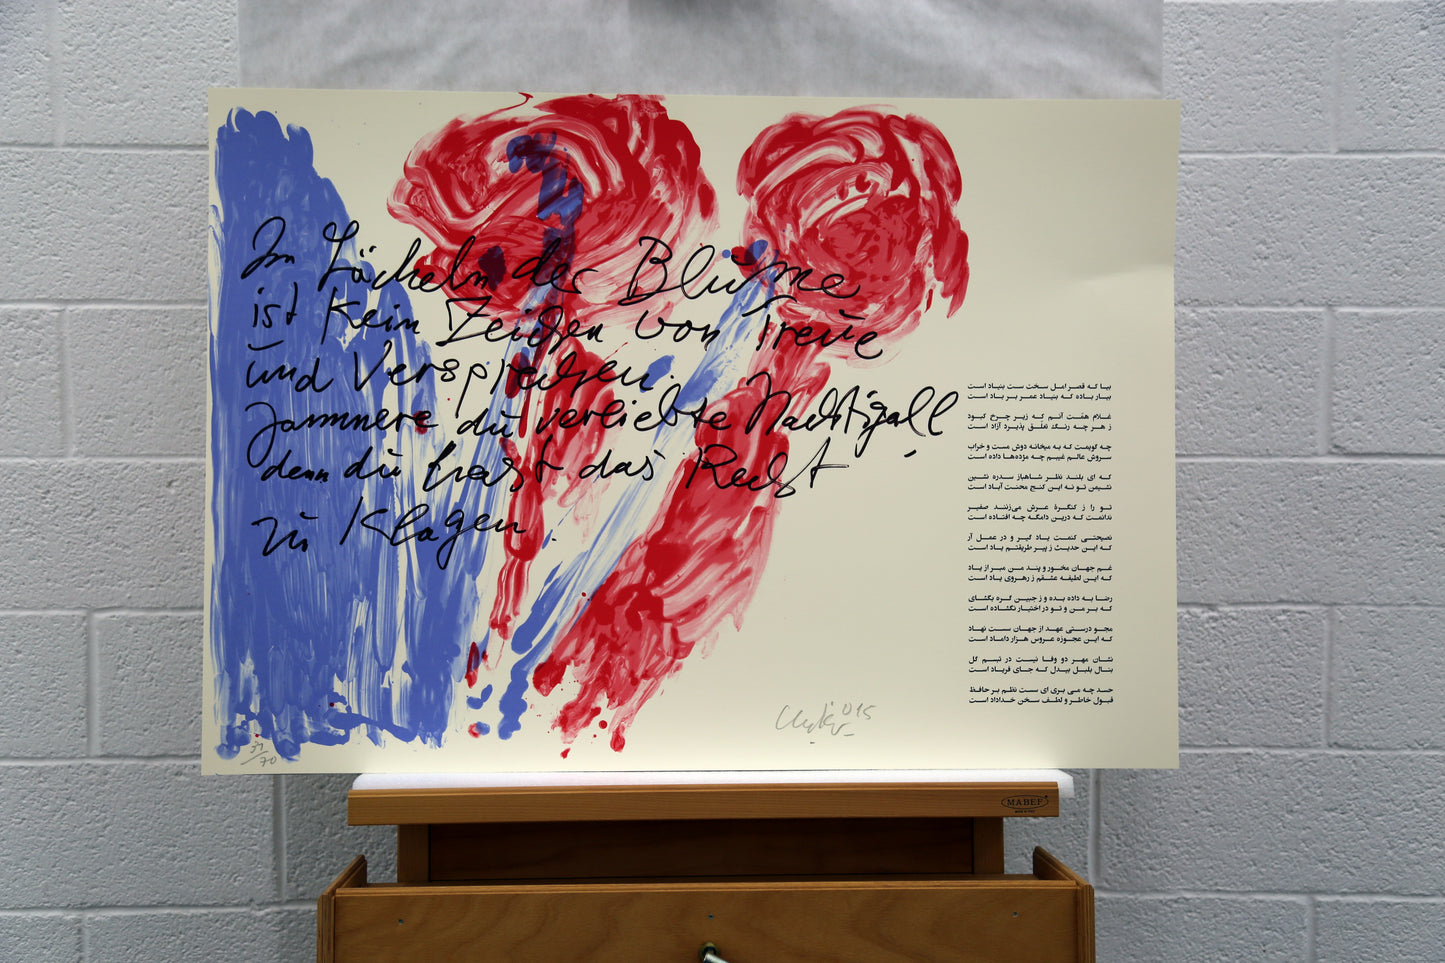 Im Lächeln der Blume
ist kein Zeichen von Treue
und Versprechen.
Jammere du verliebte Nachtigall
denn du hast das Recht
zu klagen.
بیا که قصر امل سخت سست بنیاد است
بیار باده که بنیاد عمر بر باد است
غلام همّت آنم که زیر چرخ کبود
ز هر چه رنگ تعلّق پذیرد آزاد است
چه گویمت که به میخانه دوش مست و خراب
سروش عالم غیبم چه مژده‌ها داده است
که ای بلند نظر شاهباز سدره نشین
نشیمن تو نه این کنج محنت آباد است
تو را ز کنگرهٔ عرش می‌زنند صفیر
ندانمت که درین دامگه چه افتاده است
نصیحتی کنمت یاد گیر و در عمل آر
که این حدیث ز پیر طریقتم یاد است
غم جهان مخور و پند من مبر از یاد
که این لطیفه عشقم ز رهروی یاد است
رضا به داده بده و ز جبین گره بگشای
که بر من و تو در اختیار نگشاده است
مجو درستی عهد از جهان سست نهاد
که این عجوزه عروس هزار داماد است
نشان مهر دو وفا نیست در تبسم گل
بنال بلبل بیدل که جای فریاد است
حسد چه می بری ای سست نظم بر حافظ
قبول خاطر و لطف سخن خداداد است
015
31/70
MABEF